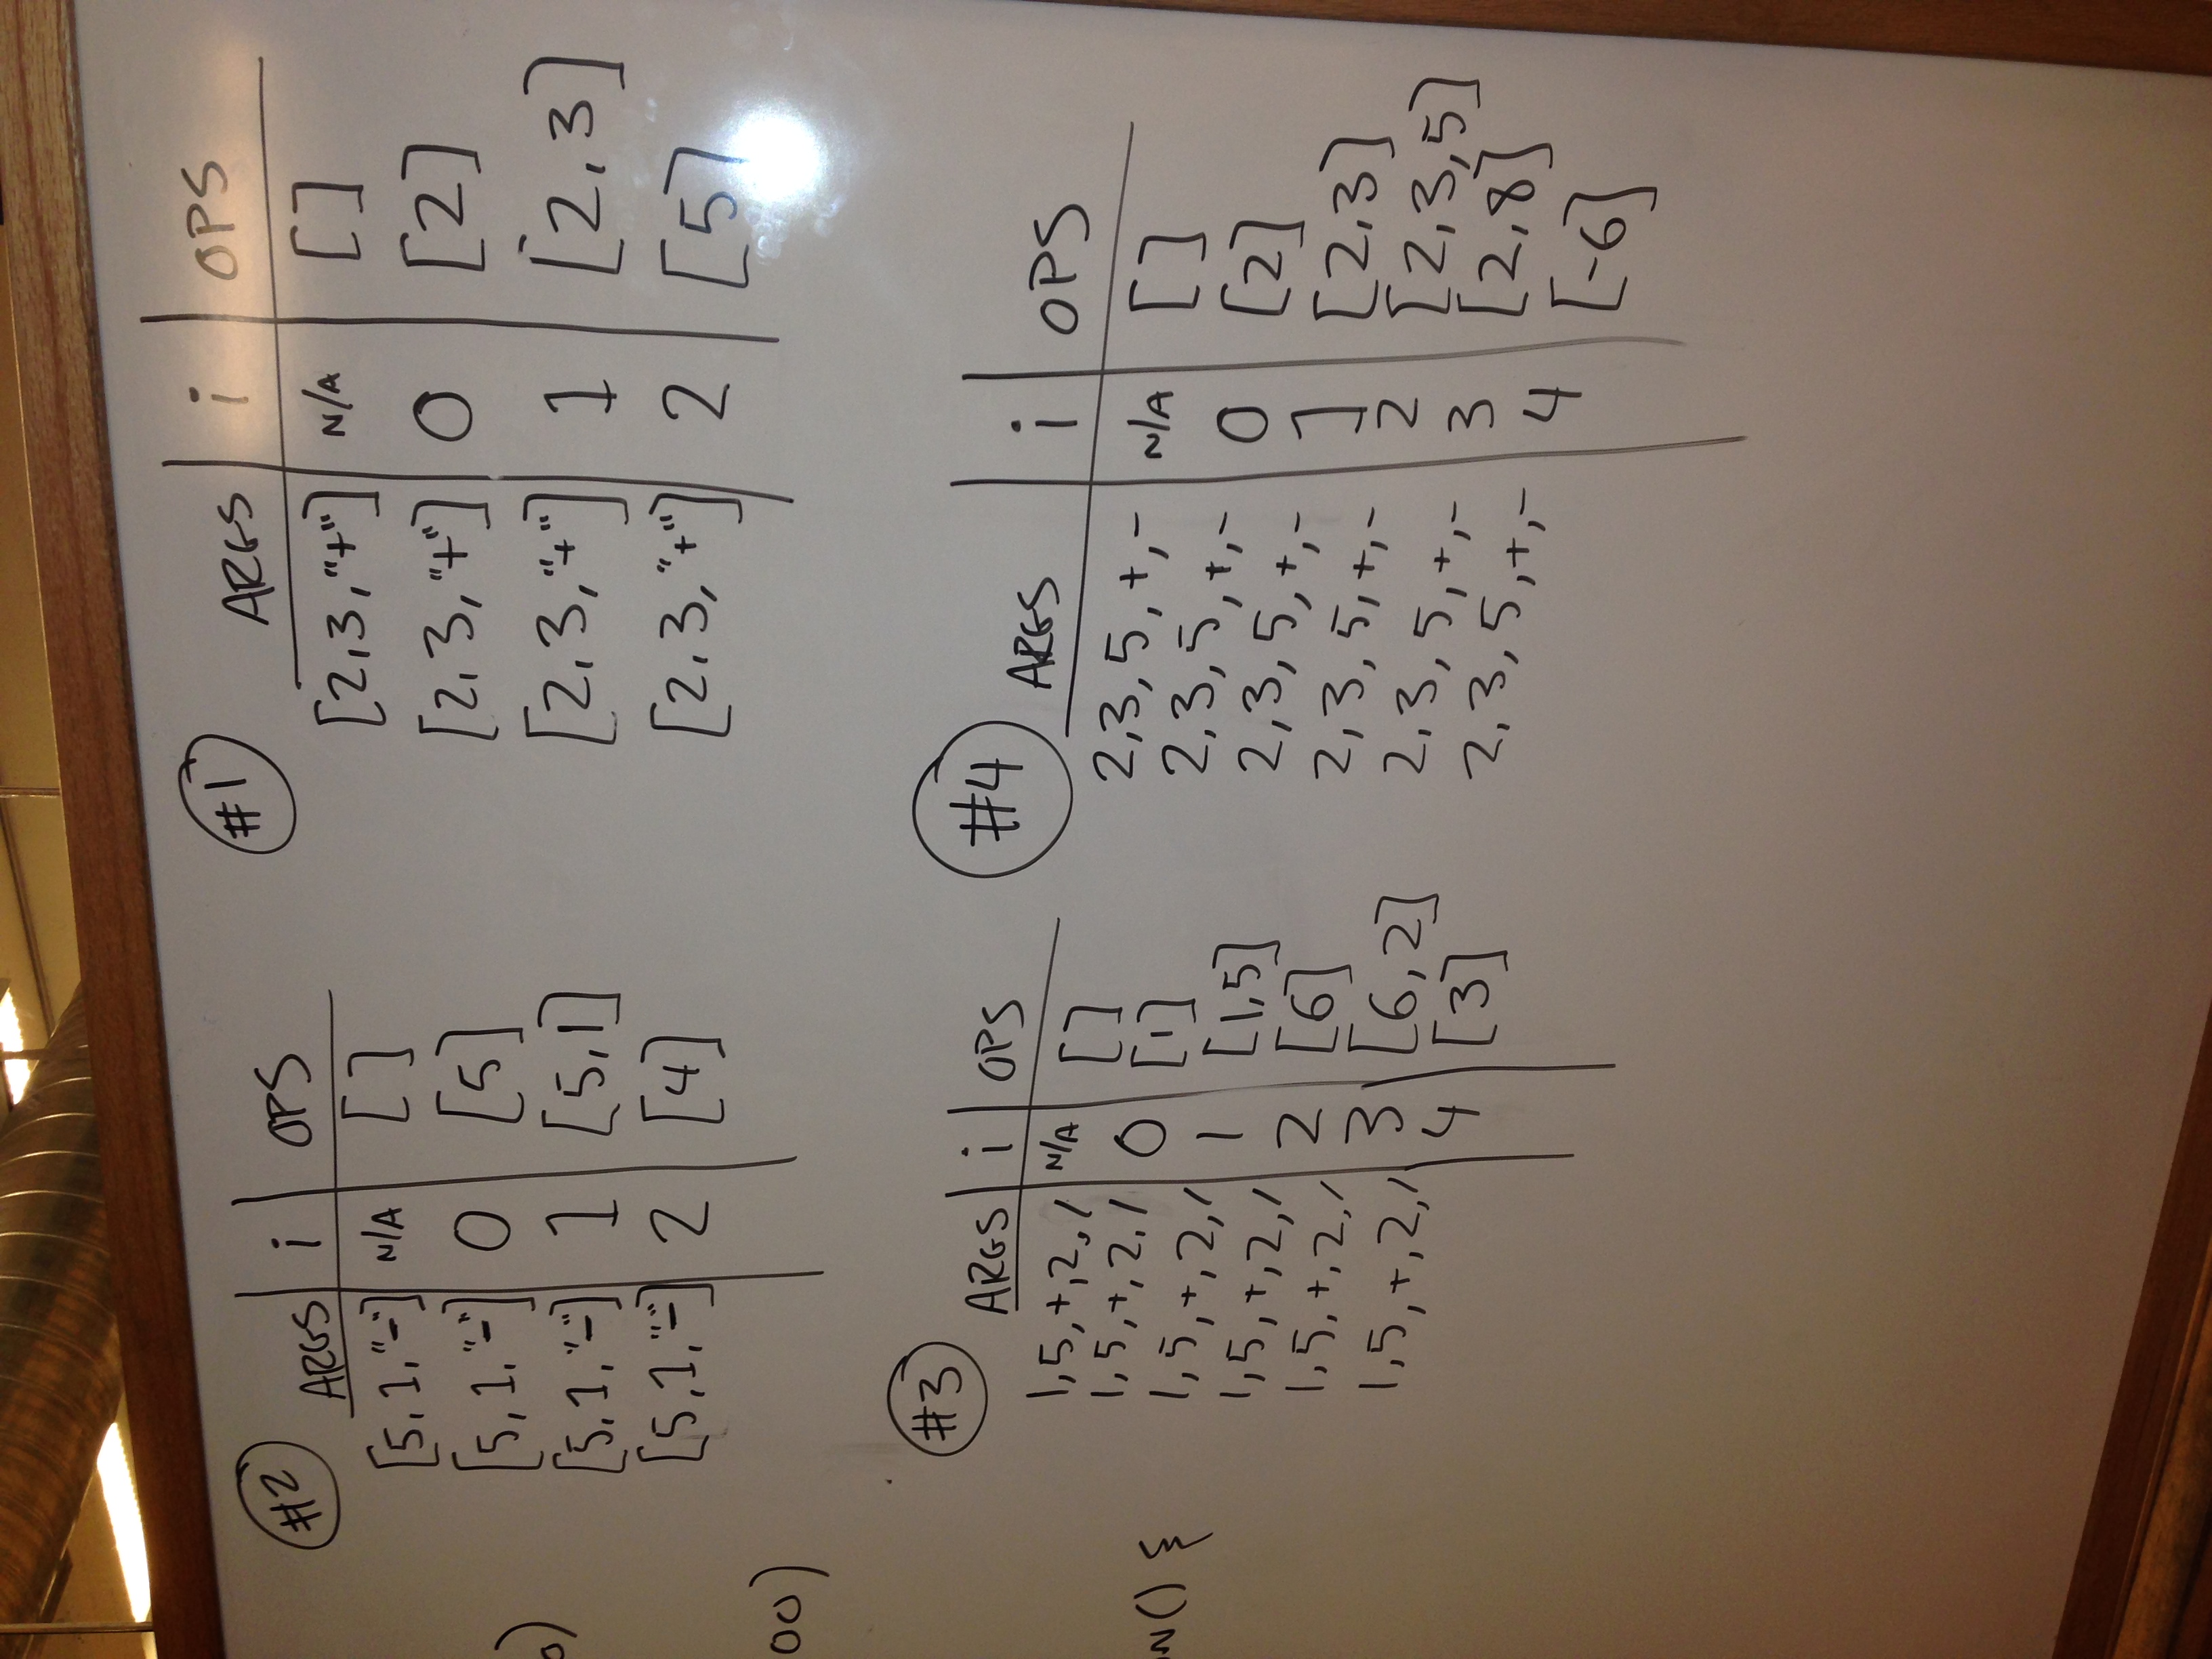 #2
ARGS i OPS
[5, 1, "-"] N/A []
[5, 1, "-"] 0 [5]
[5, 1, "-"] 1 [5,1]
[5,1,"-"] 2 [4]
#1
ARGS i OPS
[2,3,"+"] N/A []
[2,3,"+"] 0 [2]
[2,3,"+"] 1 [2,3]
[2,3,"+"] 2 [5]
#3
ARGS i OPS
1,5,+,2,/ N/A []
1,5,+,2,/ 0 [1]
1,5,+,2,/ 1 [1,5]
1,5,+,2,/ 2 [6]
1,5,+,2,/ 3 [6,2]
1,5,+,2,/ 4 [3]
#4
ARGS i OPS
2,3,5,+,- N/A []
2,3,5,+,- 0 [2]
2,3,5,+,- 1 [2,3]
2,3,5,+,- 2 [2,3,5]
2,3,5,+,- 3 [2,8]
2,3,5,+,- 4 [-6]
00)
N() {